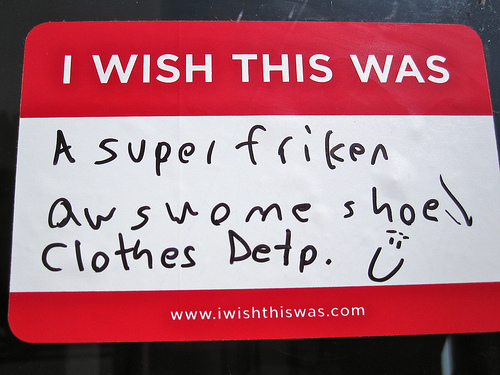 I WISH THIS WAS
A super friken
awswome shoe\
Clothes Detp.
www.iwishthiswas.com